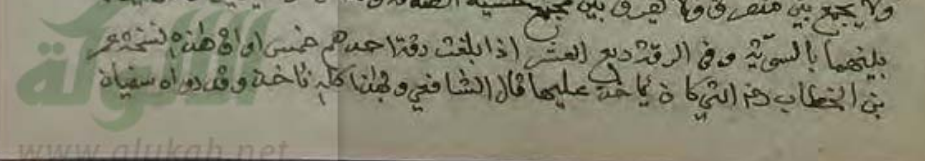 ولا يجمع بين متفرق ولا يفرق بين مجتمع خشية الصدقة
بينهما بالسوية وفي الرقة ربع العشر اذا بلغت رقة احدهم خمس اواق هذه نسخة عمر
بن الخطاب رض التي كان ياخذ عليها قال الشافعي وبهذا كله ناخذ وقد رواه سفيان
الألوكة
www.alukah.net